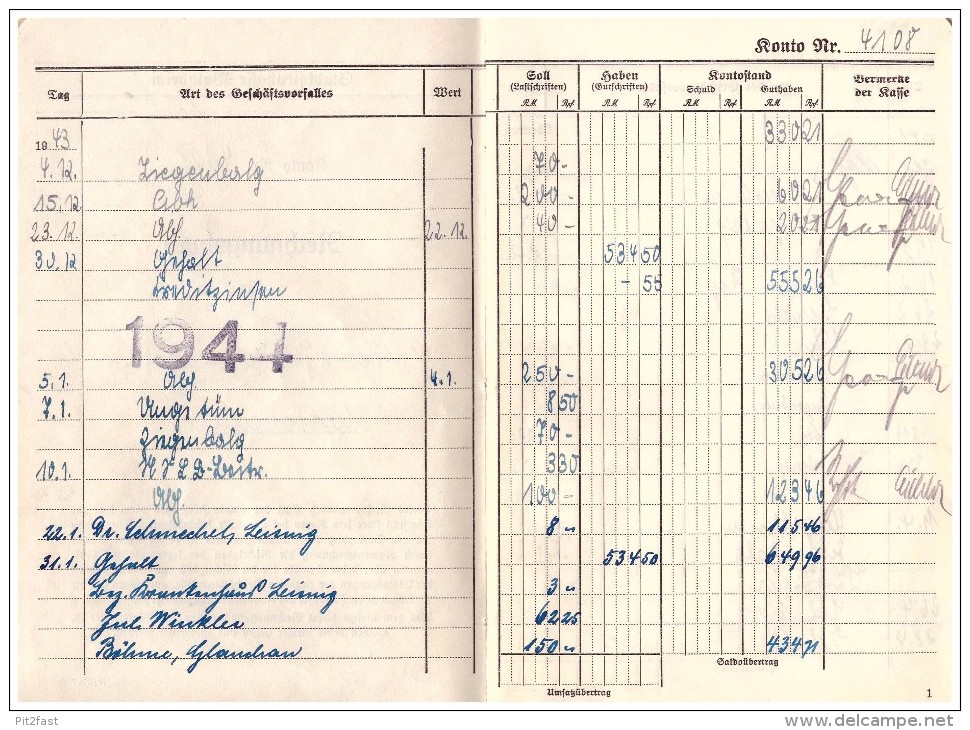 Konto Nr. 4108
Tag Art des Geschäftsvorfalles Wert Soll (Lastschriften) RM Rpf Haben (Gutschriften) RM Rpf Kontostand Schuld RM Rpf Guthaben RM Rpf Vermerke der Kasse
1943 330 21
4.12. Ziegenbalg 70 -
15.12 200 - 60 21
23.12 Abh. 22.12. 40 - 20 21
30.12 Gehalt 534 50
Kreditzinsen - 55 555 26
1944
5.1. Abh. 4.1. 250 - 305 26
7.1. Ungetüm 8 50
Ziegenbalg 70 -
10.1. NSLB-Beitr. 3 30
Abh. 100 - 123 46
22.1. Dr. Leisnig 8 " 115 46
31.1. Gehalt 534 50 649 96
Bez. Krankenhaus Leisnig 3 "
Jul. Winkler 62 25
Böhme, Glauchau 150 " 434 71
Saldoübertrag
Umsatzübertrag
1
Pit2fast
www.delcampe.net